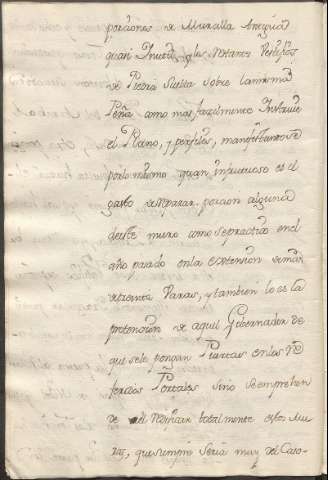 porciones de Muralla Antigua
quasi Inutil, y los restantes
de Piedra Suelta sobre la misma
Peña como mas facilmente Instruie
el Plano, y perfiles, manifestandose
por lo mismo quan infructuoso es el
gasto de reparar porcion alguna
de este muro como se practicó en el
año pasado en la extension de mas
de treinta Varas, y tambien lo es la
pretencion de aquel Governador de
que se le pongan Puertas en los
feridos Portales sino se emprehen
de el reedificar totalmente estos Mu
ros, que siempre seria muy del Caso